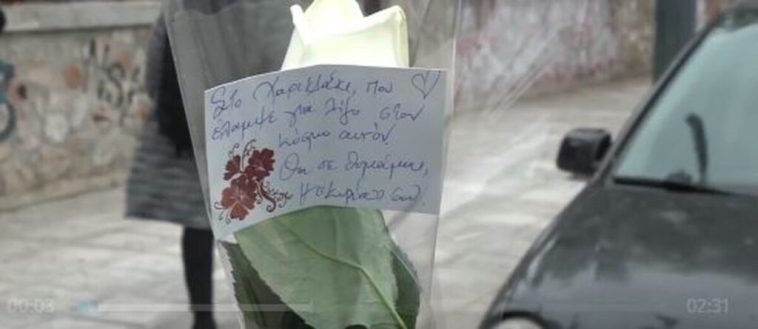 Στο Χαρικλάκι, που
έλαμψε για λίγο στον
κόσμο αυτόν.
Θα σε θυμάμαι,
Η κυρία σου.
00:03
02:31